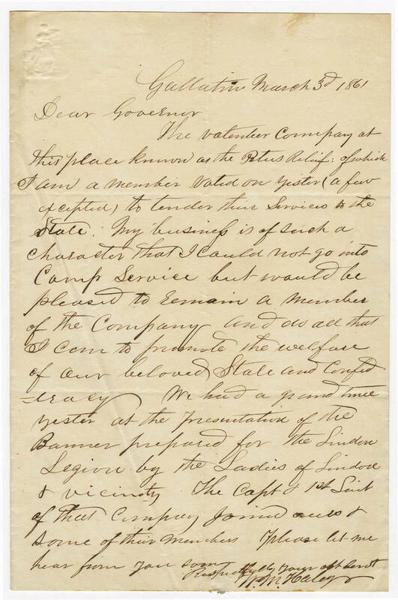 Gallatin March 3d 1861
Dear Governor
The Valenteer Company at
this place known as the Peters Relief: of which
I am a member Voted on yester (a few
excepted) to tender their Services to the
State. My business is of Such a
character that I could not go into
Camp Service but would be
pleased to remain a member
of the Company and do all that
I can to promote the welfare
of our beloved State and Confed
=racy We had a grand time
yester at the presentation of the
Banner prepared for the Linden
Legion by the Ladies of Linden
& vicinity The Capt & 1st Lieut
of that Company Joined ours &
Some of their Members Please let me
hear from you soon
Respectfully your obt Servt
W. M. Haley